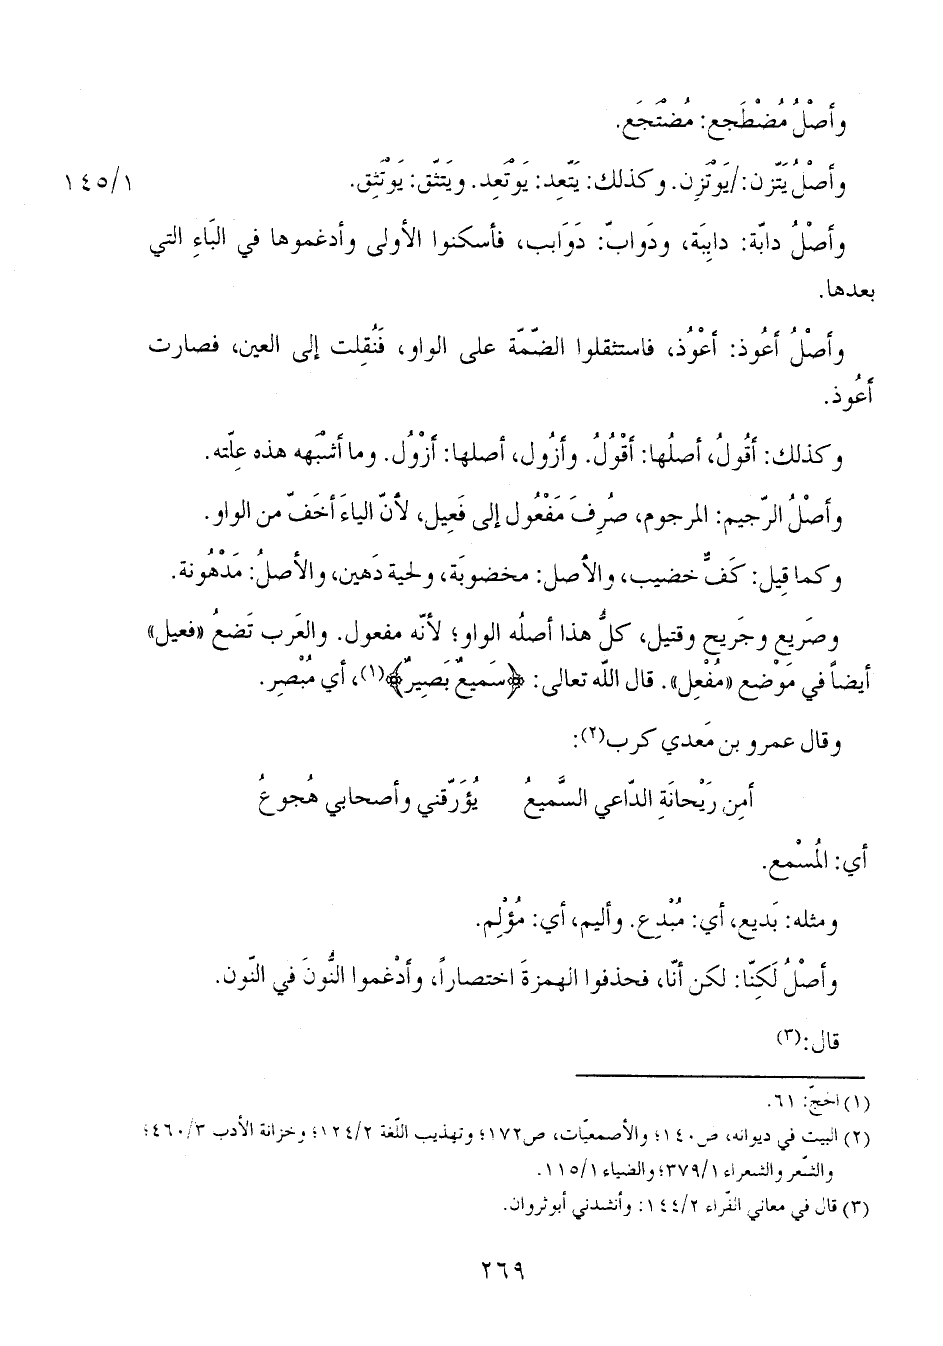 وأصْلُ مُضْطَجع: مُضْتَجَع.
وأصْلُ يَتّزن:/يَوْتَزِن. وكذلك: يَتّعِد: يَوْتَعِد. ويَتّثق: يَوْتَثِق. ١٤٥/١
وأصْلُ دابّة: دابِبَة، ودَوابّ: دَوَابب، فأسكنوا الأولى وأدغموها في البَاءِ التي
بعدها.
وأصْلُ أعُوذ: أعْوُذ، فاستثقلوا الضّمّة على الواو، فَنُقِلت إلى العين، فصارت
أعُوذ.
وكذلك: أقُولُ، أصلُها: أقْوُلُ. وأزُول، أصلها: أزْوُل. وما أشْبَهه هذه عِلّته.
وأصْلُ الرّجيم: المرجوم، صُرِفَ مَفْعُول إلى فَعِيل، لأنّ الياءَ أخَفّ من الواو.
وكما قِيل: كَفٌّ خضيب، والأصل: مخضوبَة، ولحية دَهين، والأصلُ: مَدْهُونة.
وصَريع وجَريح وقتيل، كلُّ هذا أصلُه الواو؛ لأنّه مفعول. والعَرب تَضعُ «فعيل»
أيضاً في مَوْضع «مُفْعِل». قال اللّه تعالى: ﴿سَميعٌ بَصِيرٌ﴾(١)، أي مُبْصِر.
وقال عمرو بن مَعدي كرب(٢):
أمِن رَيْحانَةِ الدّاعي السَّميعُ يُؤَرّقني وأصحابي هُجوعُ
أي: المُسْمع.
ومثله: بَديع، أي: مُبْدِع. وأليم، أي: مُؤْلِم.
وأصْلُ لَكِنّا: لكن أنّا، فحذفوا الهمزةَ اختصاراً، وأدْغموا النُّونَ في النّون.
قال:(٣)
(١) الحجّ: ٦١.
(٢) البيت في ديوانه، ص١٤٠؛ والأصمعيّات، ص١٧٢؛ وتهذيب اللّغة ١٢٤/٢؛ وخزانة الأدب ٤٦٠/٣؛
والشّعر والشعراء ٣٧٩/١؛ والضياء ١١٥/١.
(٣) قال في معاني الفّراء ١٤٤/٢: وأنشدني أبوثروان.
٢٦٩